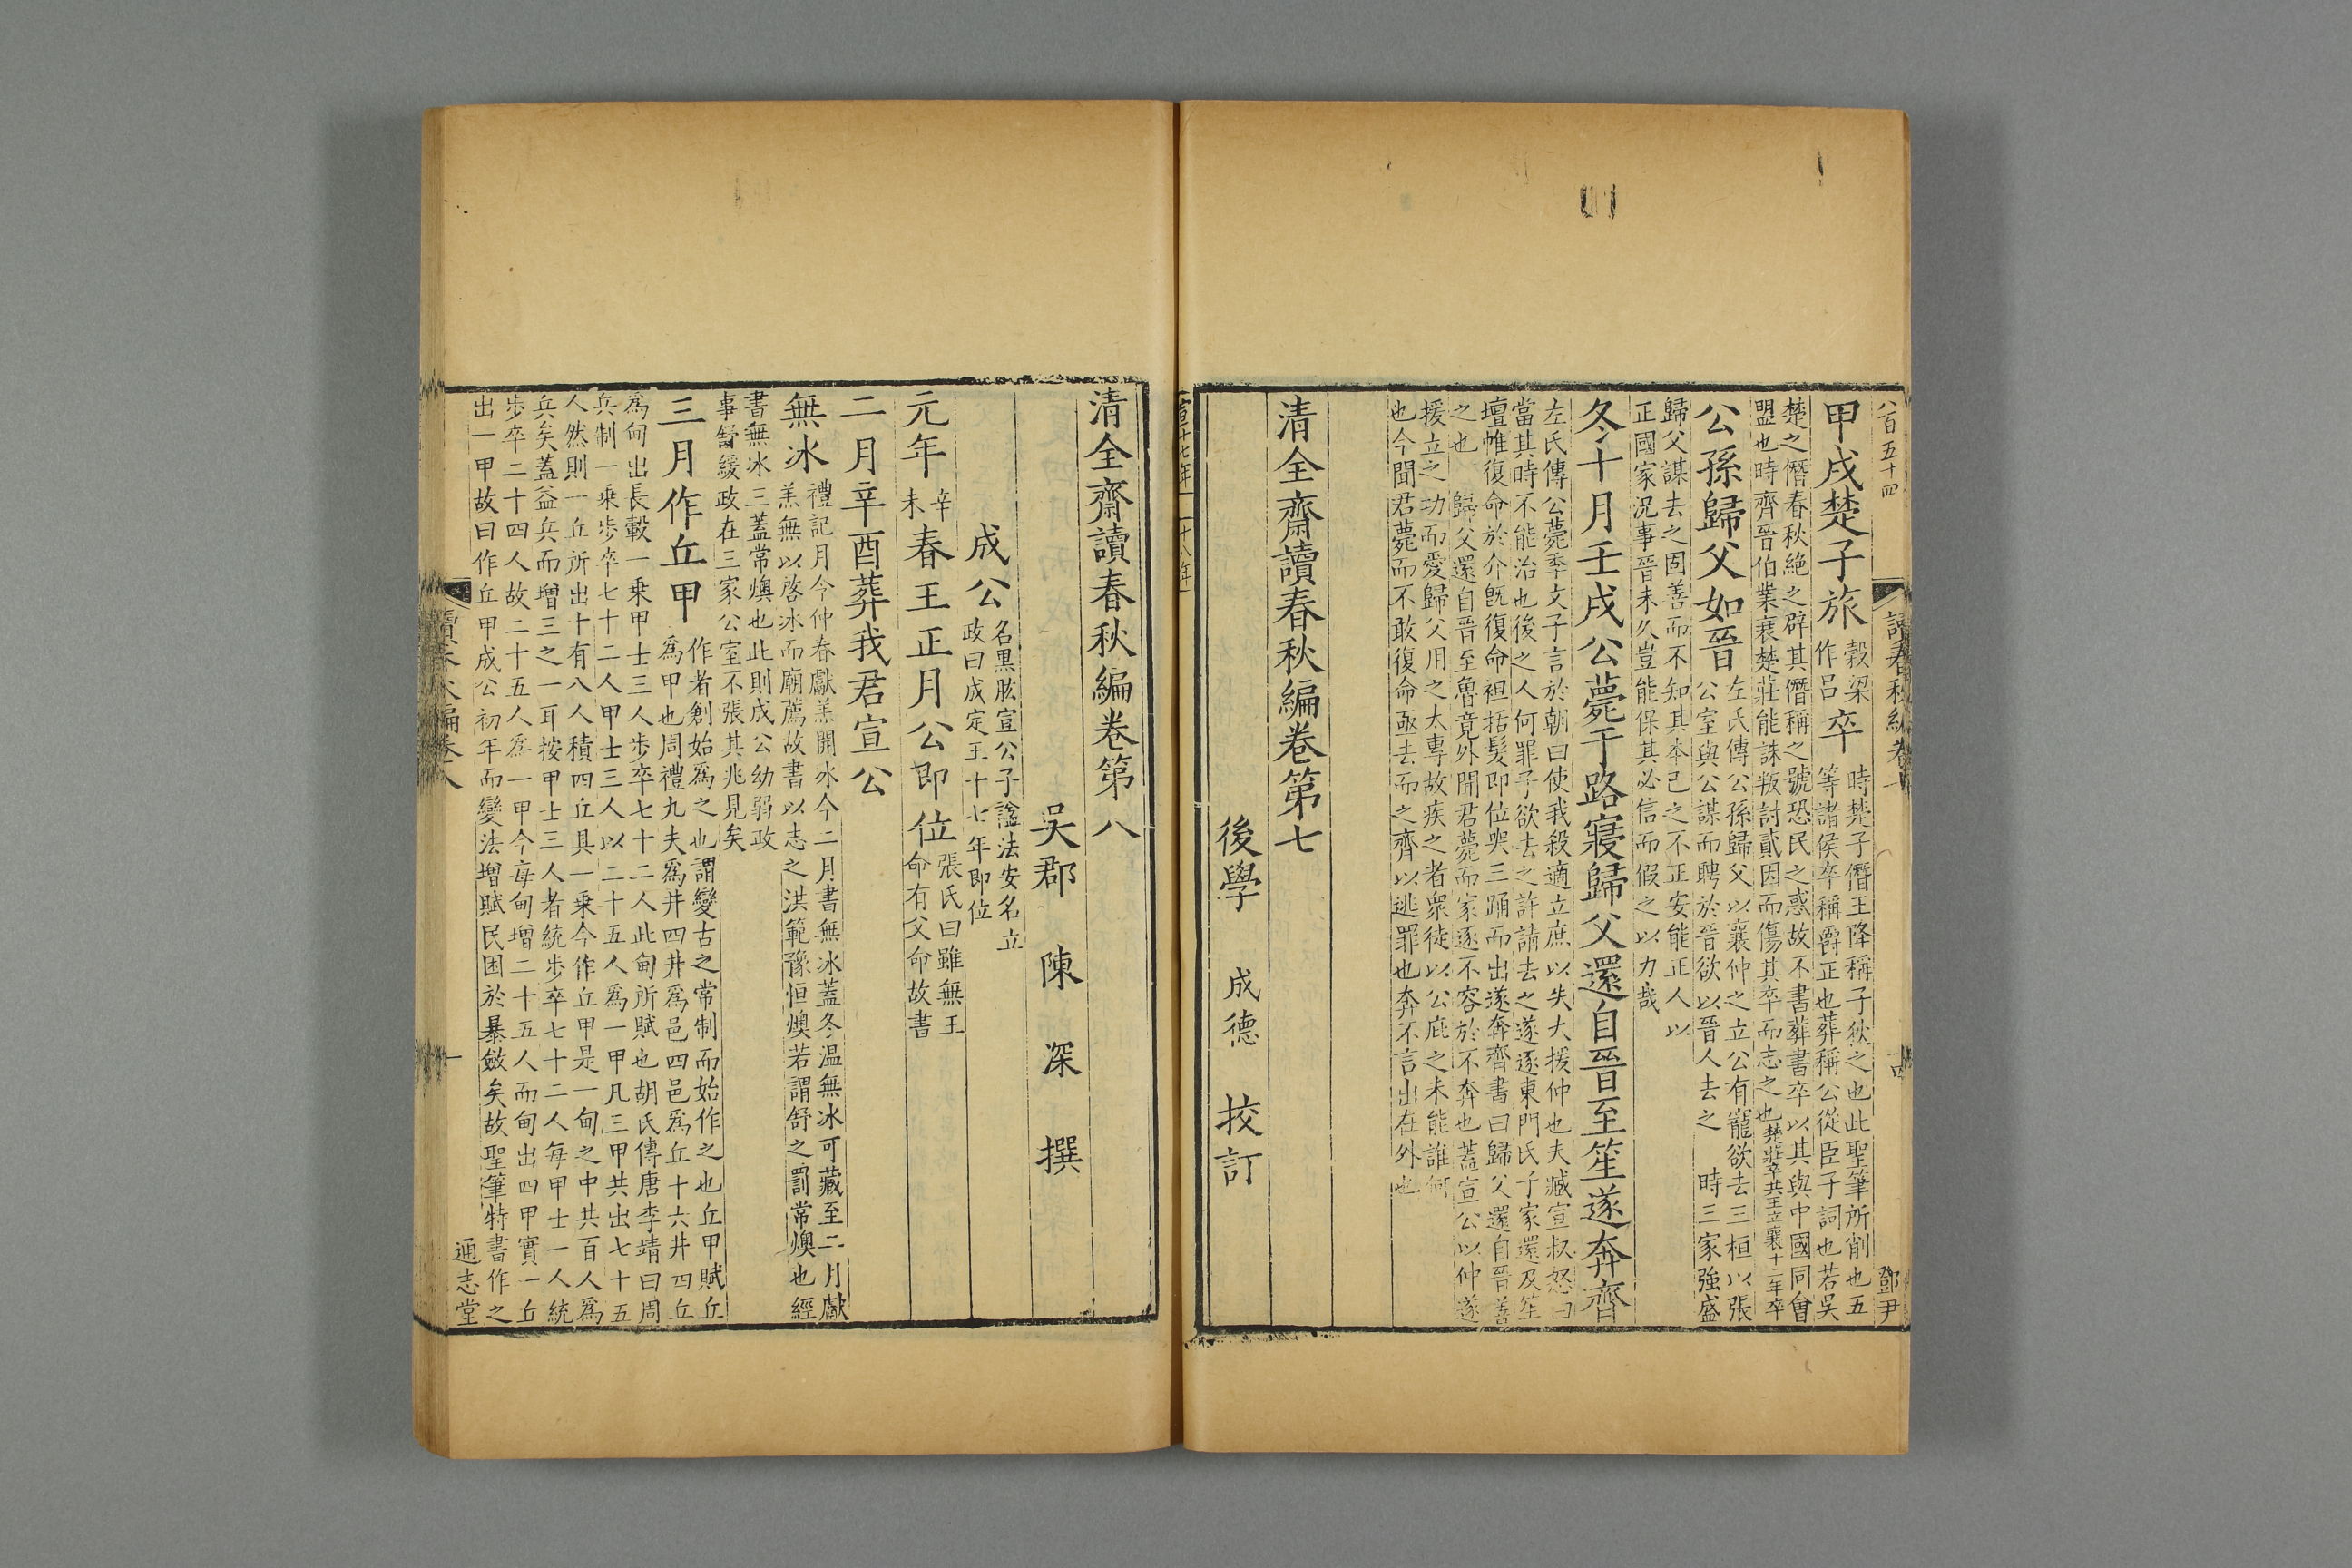 八百五十四
讀春秋編卷七
十四
鄧尹
甲戌楚子旅穀梁作呂卒時楚子僭王降稱子狄之也此聖筆所削也五等諸侯卒稱爵正也葬稱公從臣子詞也若吳
楚之僭春秋絶之辟其僭稱之號恐民之惑故不書葬書卒以其與中國同會盟也時齊晉伯業衰楚莊能誅叛討貳因而傷其卒而志之也楚莊卒共王立襄十二年卒
公孫歸父如晉左氏傳公孫歸父以襄仲之立公有寵欲去三桓以張公室與公謀而聘於晉欲以晉人去之 時三家強盛
歸父謀去之固善而不知其本已之不正安能正人以正國家況事晉未久豈能保其必信而假之以力哉
冬十月壬戌公薨于路寢歸父還自晉至笙遂奔齊
左氏傳公薨季文子言於朝曰使我殺適立庶以失大援仲也夫臧宣叔怒曰當其時不能治也後之人何罪子欲去之許請去之遂逐東門氏子家還及笙
壇帷復命於介旣復命袒括髮即位哭三踊而出遂奔齊書曰歸父還自晉善之也 歸父還自晉至魯竟外聞君薨而家逐不容於不奔也蓋宣公以仲遂
援立之功而愛歸父用之太專故疾之者衆徒以公庇之未能誰何也今聞君薨而不敢復命亟去而之齊以逃罪也奔不言出在外也
清全齋讀春秋編卷第七
後學 成德 挍訂
宣十七年 十八年
清全齋讀春秋編卷第八
吳郡 陳 深 撰
成公名黑肱宣公子諡法安名立政曰成定王十七年即位
元年辛未春王正月公即位張氏曰雖無王命有父命故書
二月辛酉葬我君宣公
無冰禮記月令仲春獻羔開冰今二月書無冰蓋冬温無冰可藏至二月獻羔無以啓冰而廟薦故書以志之洪範豫恒燠若謂舒之罰常燠也經
書無冰三蓋常燠也此則成公幼弱政事舒緩政在三家公室不張其兆見矣
三月作丘甲作者創始爲之也謂變古之常制而始作之也丘甲賦丘爲甲也周禮九夫爲井四井爲邑四邑爲丘十六井四丘
爲甸出長轂一乘甲士三人步卒七十二人此甸所賦也胡氏傳唐李靖曰周兵制一乘步卒七十二人甲士三人以二十五人爲一甲凡三甲共出七十五
人然則一丘所出十有八人積四丘具一乘今作丘甲是一甸之中共百人爲兵矣蓋益兵而增三之一耳按甲士三人者統步卒七十二人每甲士一人統
步卒二十四人故二十五人爲一甲今每甸增二十五人而甸出四甲實一丘出一甲故曰作丘甲成公初年而變法增賦民困於暴斂矣故聖筆特書作之
讀春秋編卷八
一
通志堂